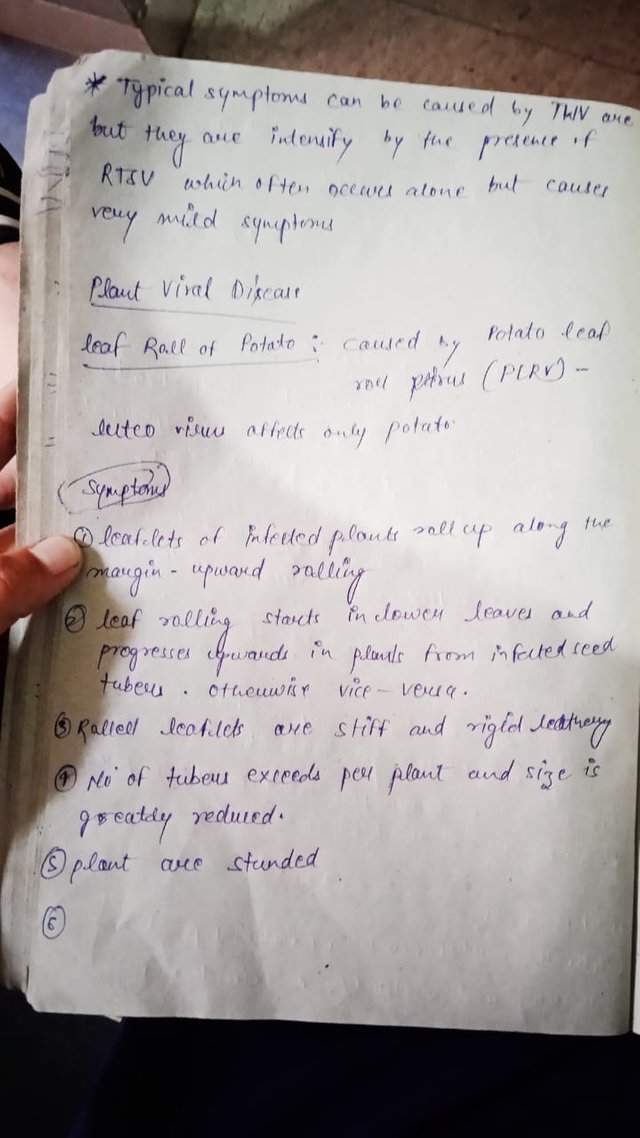 * Typical symptoms can be caused by are
but they are intensify by the presence of
RTSV which often occurs alone but causes
very mild symptoms
Plant Viral Disease
leaf Roll of Potato : caused by Potato leaf
roll (PLRV) -
luteo virus affects only potato.
Symptoms
① leaflets of infected plants roll up along the
margin - upward rolling
② leaf rolling starts in lower leaves and
progresses upwards in plants from infected seed
tubers. otherwise vice-versa.
③ Rolled leaflets are stiff and rigid leathery
④ No of tubers exceeds per plant and size is
greatly reduced.
⑤ plant are stunded
⑥